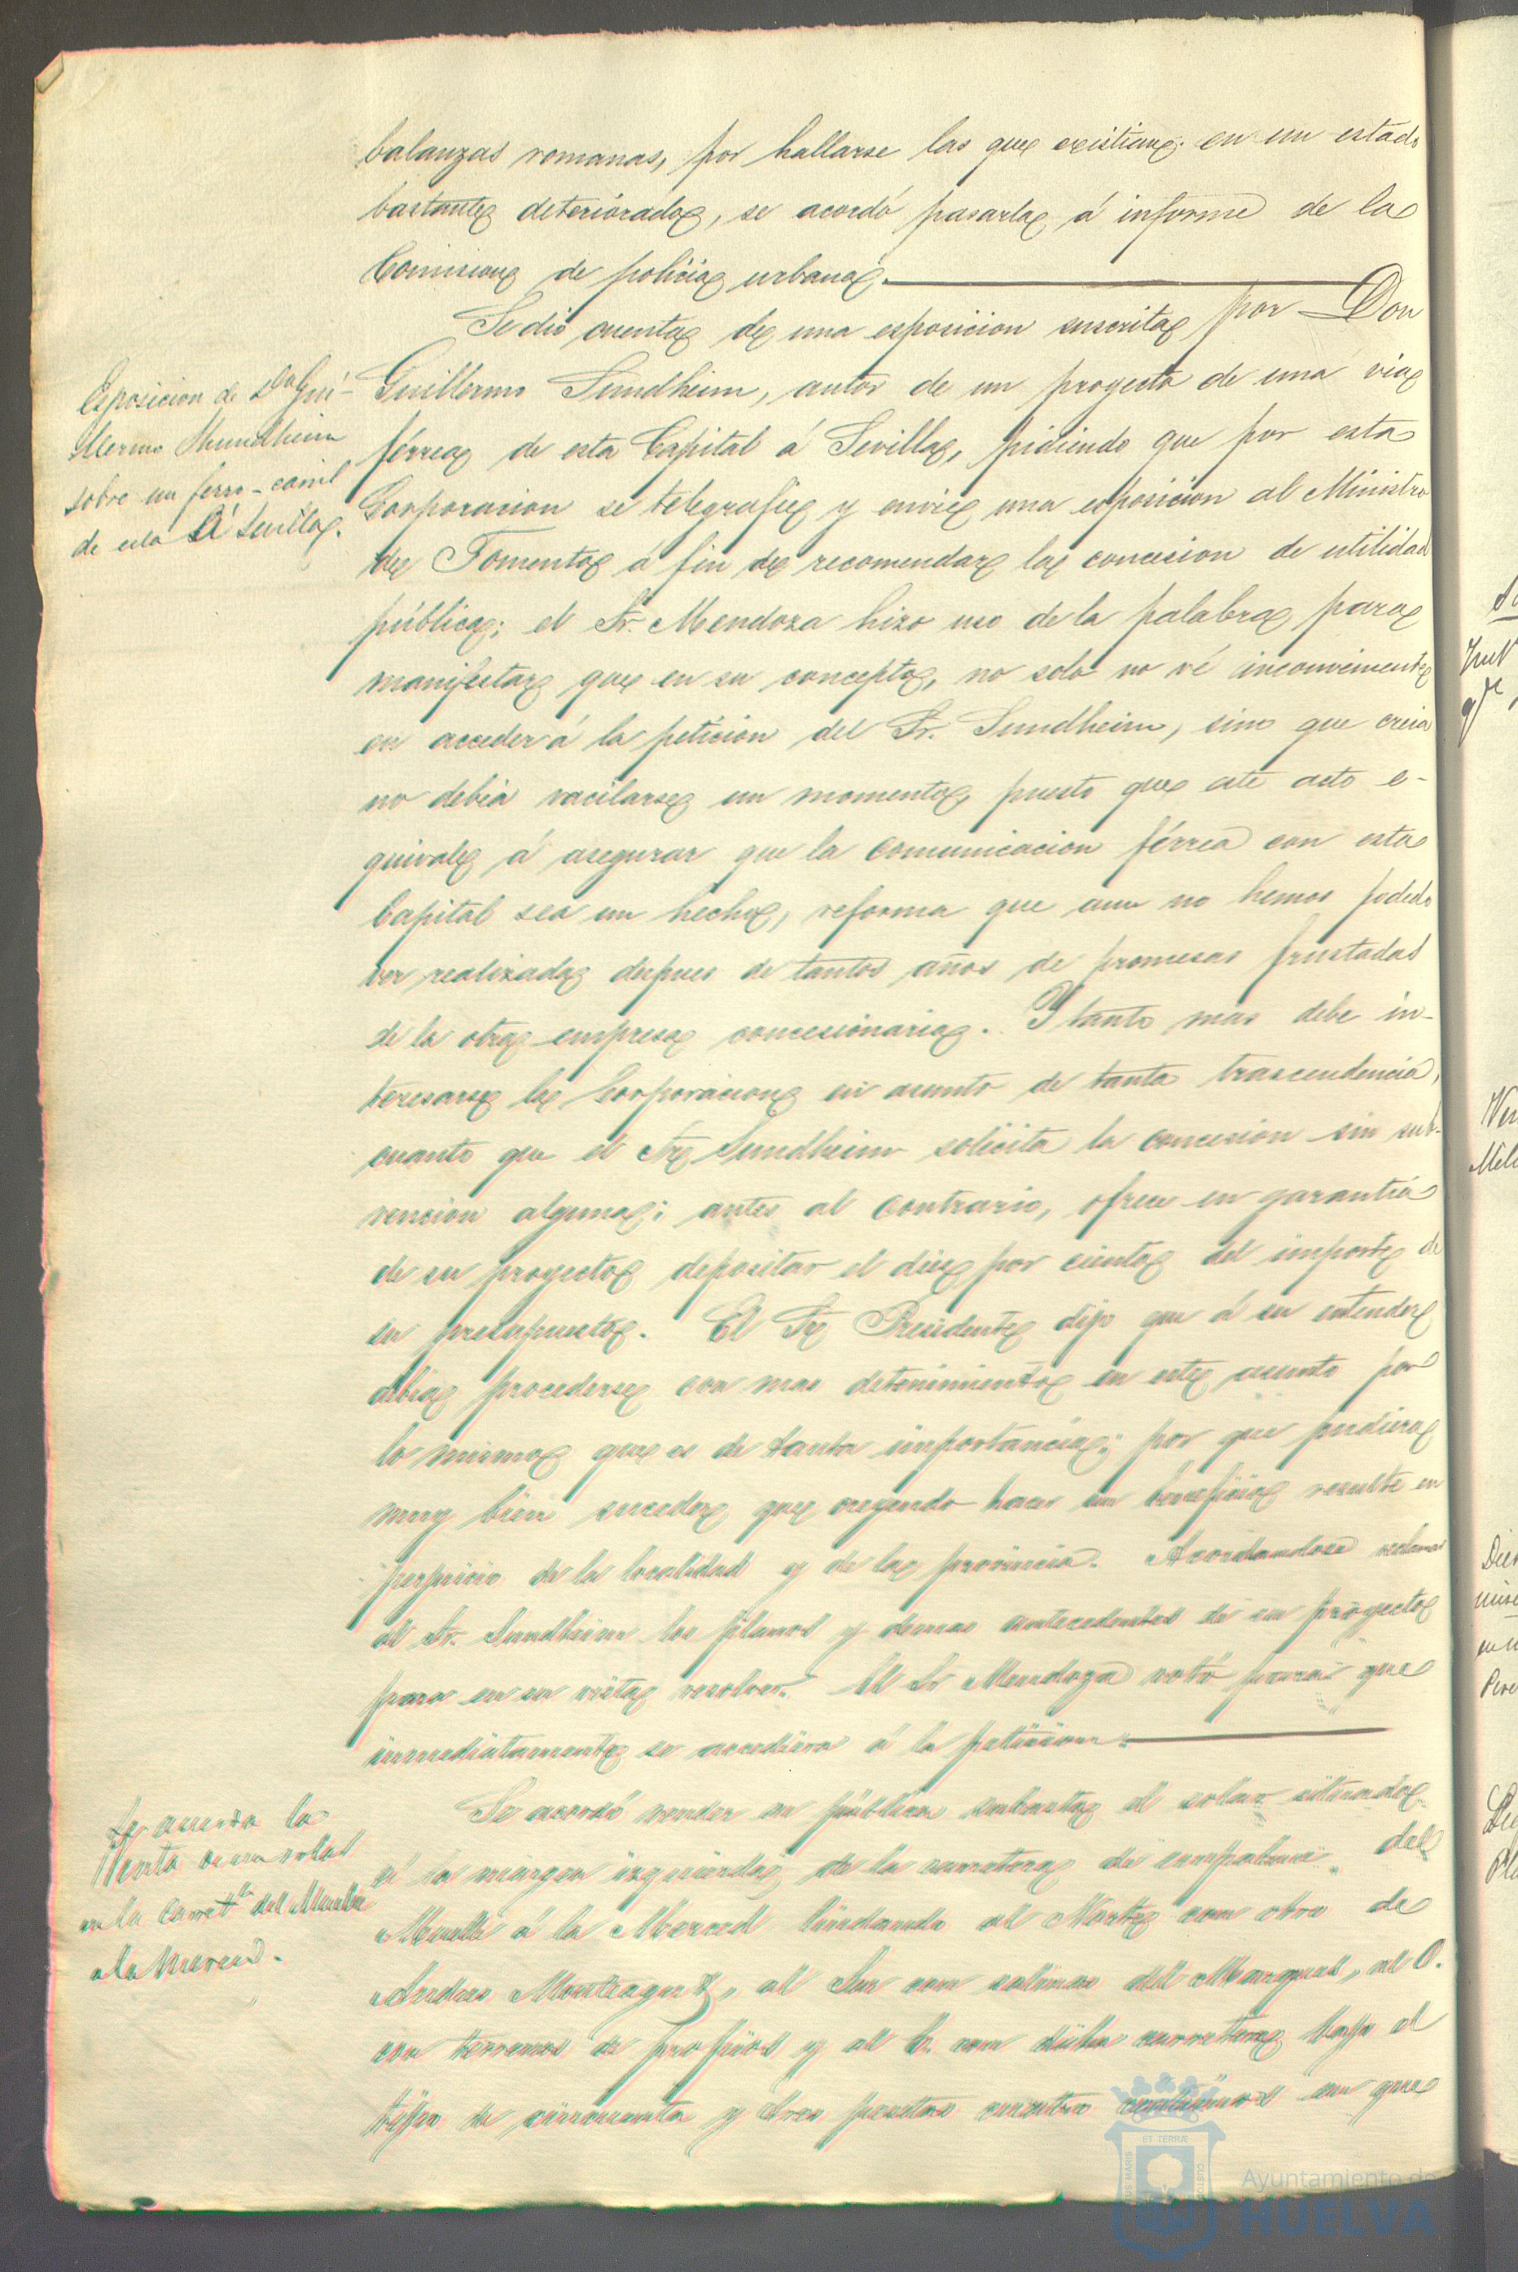 balanzas romanas, por hallarse las que existian en un estado
bastante deteriorado, se acordó pasarla á informe de la
Comision de policia urbana.
Se dió cuenta de una esposicion suscrita por Don
Esposicion de Don Gui-
llermo Shundheim
sobre un ferro-carril
de esta á Sevilla.
Guillermo Sundheim, autor de un proyecto de una via
férrea de esta Capital á Sevilla, pidiendo que por esta
Corporacion se telegrafie y envie una esposicion al Ministro
de Fomento á fin de recomendar la concesion de utilidad
pública; el Sr. Mendoza hizo uso de la palabra para
manifestar que en su concepto, no solo no vé inconveniente
en acceder á la peticion del Sr. Sundheim, sino que creia
no debia vacilarse un momento, puesto que este acto e-
quivale á asegurar que la comunicacion férrea con esta
Capital sea un hecho, reforma que aun no hemos podido
ver realizada despues de tantos años de promesas frustadas
de la otra empresa concesionaria. Y tanto mas debe in-
teresarse la Corporacion en asunto de tanta trascendencia,
cuanto que el Sr. Sundheim solicita la concesion sin sub-
vencion alguna; antes al contrario, ofrece en garantia
de su proyecto depositar el diez por ciento del importe de
su presupuesto. El Sr. Presidente dijo que á su entender
debia procederse con mas detenimiento en este asunto por
lo mismo que es de tanta importancia; por que pudiera
muy bien suceder que creyendo hacer un beneficio resulte en
perjuicio de la localidad y de la provincia. Acordandose reclamar
al Sr. Sundheim los planos y demas antecedentes de su proyecto
para en su vista resolver. El Sr. Mendoza votó para que
inmediatamente se accediera á la peticion.
Se acordó vender en pública subasta el solar situado
Se acuerda la
Venta de un solar
en la Carrta. del Muelle
a la Merced.
á la márgen izquierda de la carretera de empalme del
Muelle á la Merced lindando al Norte con otro de
Andres Mortiaguet, al Sur con salinas del Marqués, al O.
con terrenos de propios y al E. con dicha carretera bajo el
tipo de cincuenta y tres pesetas cuatro centimos en que
ET TERRÆ
Ayuntamiento de
HUELVA